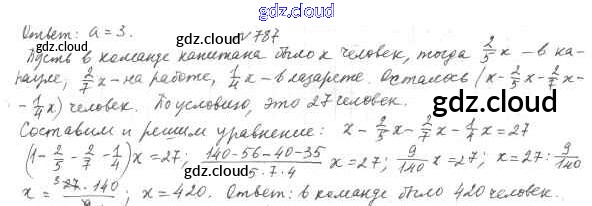 gdz.cloud
Ответ: a = 3. № 787
gdz.cloud
Пусть в команде капитана было x человек, тогда 2/5 x – в ка-
рауле, 2/7 x – на работе, 1/4 x – в лазарете. Осталось (x - 2/5 x - 2/7 x -
- 1/4 x) человек. По условию, это 27 человек.
gdz.cloud
Составим и решим уравнение: x - 2/5 x - 2/7 x - 1/4 x = 27
gdz.cloud
(1 - 2/5 - 2/7 - 1/4) x = 27; (140-56-40-35)/(5·7·4) x = 27; 9/140 x = 27; x = 27 : 9/140
x = 27·140/9; x = 420. Ответ: в команде было 420 человек.
gdz.cloud